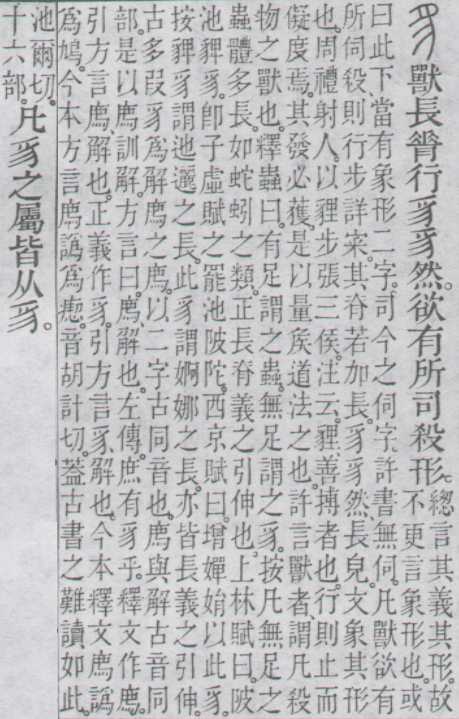 豸獸長脊行豸豸然。欲有所司殺形。
總言其義其形。故
不更言象形也。或
曰此下當有象形二字。司今之伺字。許書無伺。凡獸欲有
所伺殺則行步詳寀。其脊若加長。豸豸然長皃。文象其形
也。周禮射人。以貍步張三矦。注云。貍、善搏者也。行則止而
儗度焉。其發必獲。是以量矦道法之也。許言獸者、謂凡殺
物之獸也。釋蟲曰。有足謂之蟲。無足謂之豸。按凡無足之
蟲體多長。如蛇蚓之類。正長脊義之引伸也。上林賦曰。陂
池貏豸。卽子虛賦之罷池陂陀。西京賦曰。增嬋娟以此豸。
按貏豸謂迆邐之長。此豸謂婀娜之長。亦皆長義之引伸。
古多叚豸爲解廌之廌。以二字古同音也。廌與解古音同
部。是以廌訓解。方言曰。廌、解也。左傳。庶有豸乎。釋文作廌。
引方言廌、解也。正義作豸。引方言豸、解也。今本釋文廌譌
爲鳩。今本方言廌譌爲瘛。音胡計切。葢古書之難讀如此。
池爾切。
十六部。
凡豸之屬皆从豸。